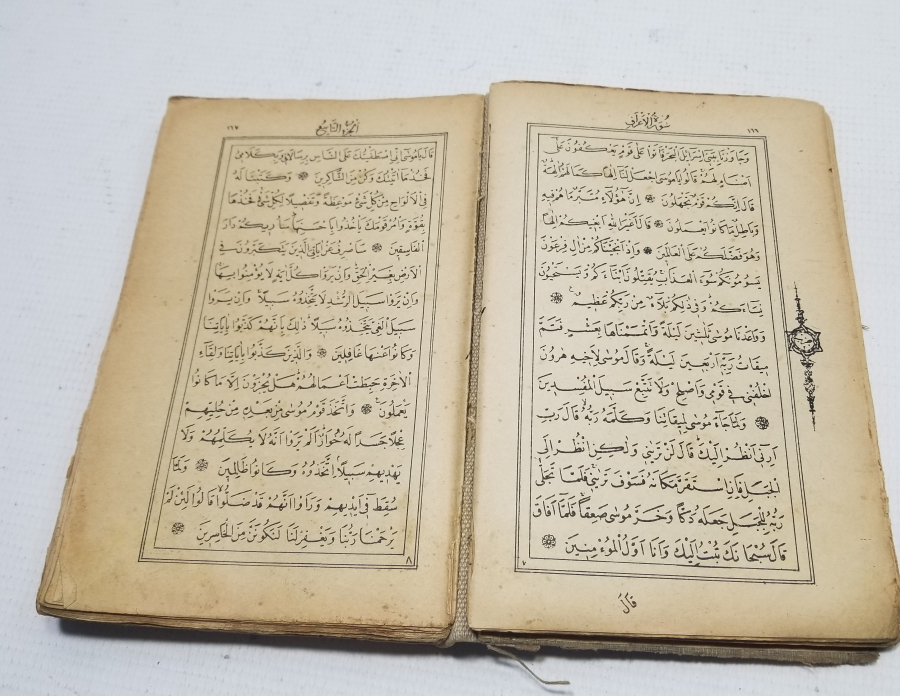 سُورَةُ الْأَعْرَافِ ١٦٦
وَجَاوَزْنَا بِبَنِى اِسْرَائِلَ الْبَحْرَ فَاَتَوْا عَلٰى قَوْمٍ يَعْكُفُونَ عَلٰٓى
اَصْنَامٍ لَهُمْ قَالُوا يَامُوسَى اجْعَلْ لَنَا اِلٰهًا كَمَا لَهُمْ اٰلِهَةٌ
قَالَ اِنَّكُمْ قَوْمٌ تَجْهَلُونَ اِنَّ هٰؤُلَاءِ مُتَبَّرٌ مَا هُمْ فِيهِ
وَبَاطِلٌ مَا كَانُوا يَعْمَلُونَ قَالَ اَغَيْرَ اللّٰهِ اَبْغِيكُمْ اِلٰهًا
وَهُوَ فَضَّلَكُمْ عَلَى الْعَالَمِينَ وَاِذْ اَنْجَيْنَاكُمْ مِنْ اٰلِ فِرْعَوْنَ
يَسُومُونَكُمْ سُوٓءَ الْعَذَابِ يُقَتِّلُونَ اَبْنَٓاءَكُمْ وَيَسْتَحْيُونَ
نِسَٓاءَكُمْ وَفِى ذٰلِكُمْ بَلَٓاءٌ مِنْ رَبِّكُمْ عَظِيمٌ
وَوَاعَدْنَا مُوسٰى ثَلٰثِينَ لَيْلَةً وَاَتْمَمْنَاهَا بِعَشْرٍ فَتَمَّ
مِيقَاتُ رَبِّهِ اَرْبَعِينَ لَيْلَةً وَقَالَ مُوسٰى لِاَخِيهِ هٰرُونَ
اخْلُفْنِى فِى قَوْمِى وَاَصْلِحْ وَلَا تَتَّبِعْ سَبِيلَ الْمُفْسِدِينَ
وَلَمَّا جَٓاءَ مُوسٰى لِمِيقَاتِنَا وَكَلَّمَهُ رَبُّهُ قَالَ رَبِّ
اَرِنِى اَنْظُرْ اِلَيْكَ قَالَ لَنْ تَرٰينِى وَلٰكِنِ انْظُرْ اِلَى
الْجَبَلِ فَاِنِ اسْتَقَرَّ مَكَانَهُ فَسَوْفَ تَرٰينِى فَلَمَّا تَجَلّٰى
رَبُّهُ لِلْجَبَلِ جَعَلَهُ دَكًّا وَخَرَّ مُوسٰى صَعِقًا فَلَمَّٓا اَفَاقَ
قَالَ سُبْحَانَكَ تُبْتُ اِلَيْكَ وَاَنَا اَوَّلُ الْمُؤْمِنِينَ
٧
قَالَ
اَلْجُزْءُ التَّاسِعُ ١٦٧
قَالَ يَامُوسٰى اِنِّى اصْطَفَيْتُكَ عَلَى النَّاسِ بِرِسَالَاتِى وَبِكَلَامِى
فَخُذْ مَٓا اٰتَيْتُكَ وَكُنْ مِنَ الشَّاكِرِينَ وَكَتَبْنَا لَهُ
فِى الْاَلْوَاحِ مِنْ كُلِّ شَىْءٍ مَوْعِظَةً وَتَفْصِيلًا لِكُلِّ شَىْءٍ فَخُذْهَا
بِقُوَّةٍ وَأْمُرْ قَوْمَكَ يَأْخُذُوا بِاَحْسَنِهَا سَاُورِيكُمْ دَارَ
الْفَاسِقِينَ سَاَصْرِفُ عَنْ اٰيَاتِىَ الَّذِينَ يَتَكَبَّرُونَ فِى
الْاَرْضِ بِغَيْرِ الْحَقِّ وَاِنْ يَرَوْا كُلَّ اٰيَةٍ لَا يُؤْمِنُوا بِهَا
وَاِنْ يَرَوْا سَبِيلَ الرُّشْدِ لَا يَتَّخِذُوهُ سَبِيلًا وَاِنْ يَرَوْا
سَبِيلَ الْغَىِّ يَتَّخِذُوهُ سَبِيلًا ذٰلِكَ بِاَنَّهُمْ كَذَّبُوا بِاٰيَاتِنَا
وَكَانُوا عَنْهَا غَافِلِينَ وَالَّذِينَ كَذَّبُوا بِاٰيَاتِنَا وَلِقَٓاءِ
الْاٰخِرَةِ حَبِطَتْ اَعْمَالُهُمْ هَلْ يُجْزَوْنَ اِلَّا مَا كَانُوا
يَعْمَلُونَ وَاتَّخَذَ قَوْمُ مُوسٰى مِنْ بَعْدِهِ مِنْ حُلِيِّهِمْ
عِجْلًا جَسَدًا لَهُ خُوَارٌ اَلَمْ يَرَوْا اَنَّهُ لَا يُكَلِّمُهُمْ وَلَا
يَهْدِيهِمْ سَبِيلًا اِتَّخَذُوهُ وَكَانُوا ظَالِمِينَ وَلَمَّا
سُقِطَ فِى اَيْدِيهِمْ وَرَاَوْا اَنَّهُمْ قَدْ ضَلُّوا قَالُوا لَئِنْ لَمْ
يَرْحَمْنَا رَبُّنَا وَيَغْفِرْ لَنَا لَنَكُونَنَّ مِنَ الْخَاسِرِينَ
٨